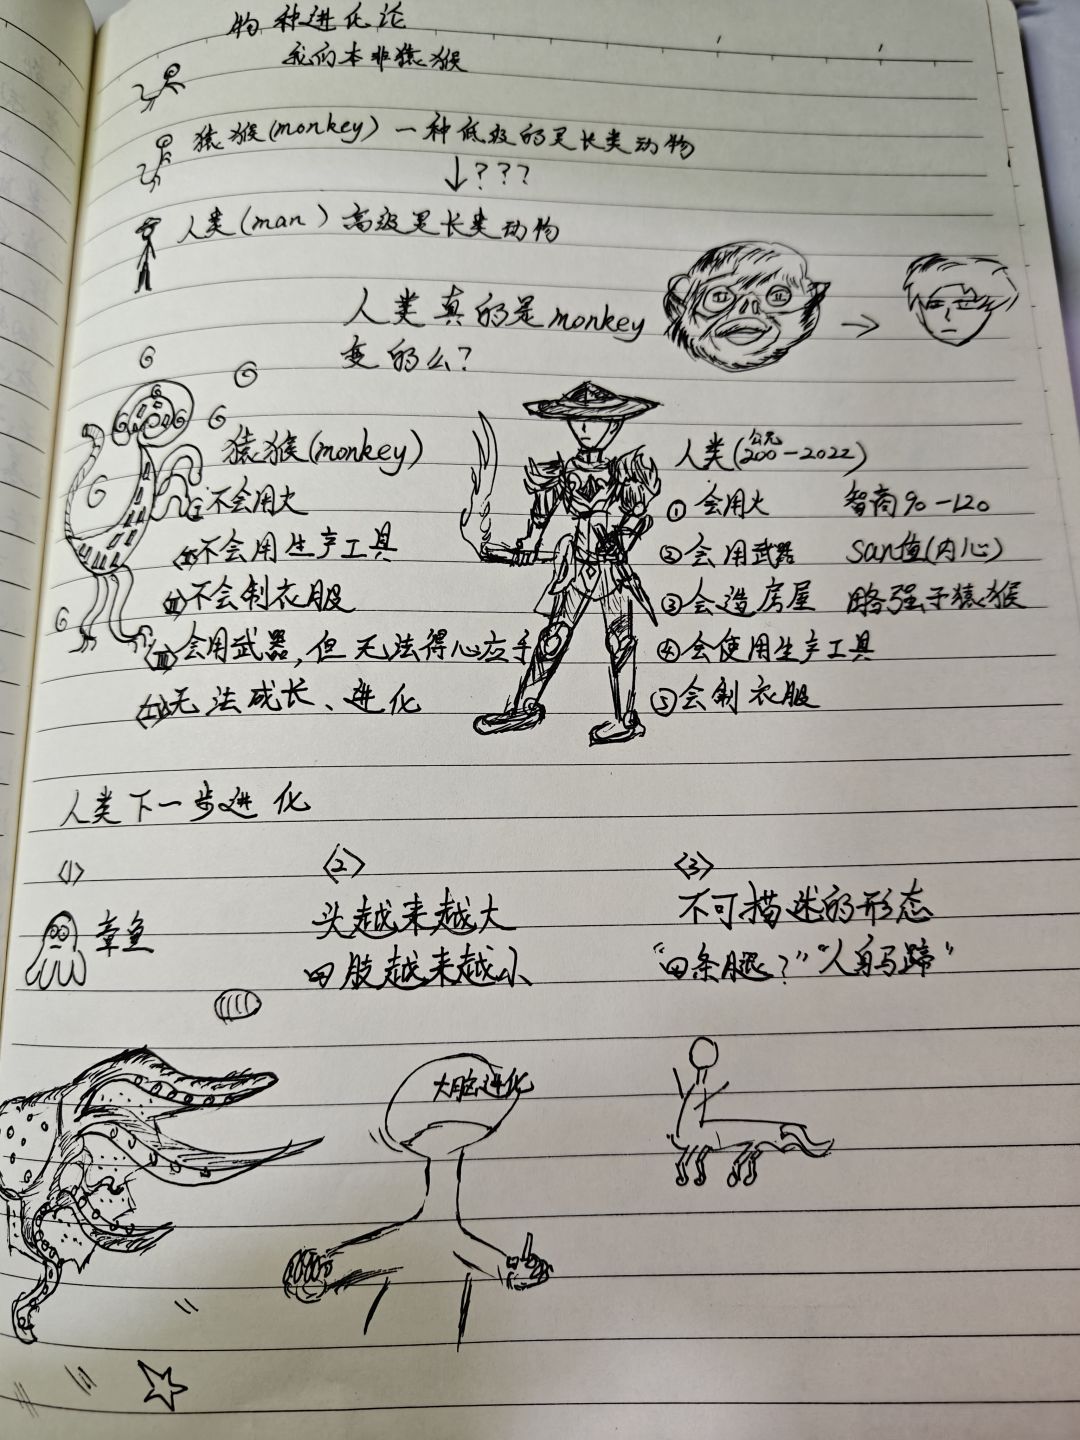 物种进化论
我们本非猿猴
猿猴(monkey)一种低级的灵长类动物
↓???
人类(man)高级灵长类动物
人类真的是monkey
变的么?
猿猴(monkey)
不会用火
不会用生产工具
不会制衣服
会用武器,但无法得心应手
无法成长、进化
人类(公元200-2022)
①会用火 智商90-120
②会用武器 San值(内心)
③会造房屋 略强于猿猴
④会使用生产工具
⑤会制衣服
人类下一步进化
〈1〉
章鱼
〈2〉
头越来越大
四肢越来越小
〈3〉
不可描述的形态
“四条腿?”“人身马蹄”
大脑进化